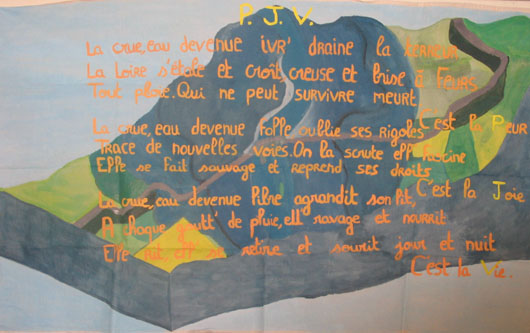 P. J. V.
La crue, eau devenue ivr' draine la terreur
La Loire s'étale et croît, creuse et brise à Feurs
Tout ploie. Qui ne peut survivre meurt
C'est la Peur
La crue, eau devenue folle, oublie ses rigoles
Trace de nouvelles voies. On la scrute ell' fascine
Elle se fait sauvage et reprend ses droits
C'est la Joie
La crue, eau devenue libre agrandit son lit,
A chaque goutt' de pluie, ell' ravage et nourrit
Elle rit, ell' se retire et sourit jour et nuit
C'est la Vie.